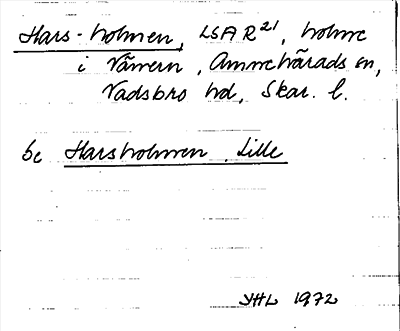 Hars-holmen, LSA R21, holme
i Vänern, Amnehärads sn,
Vadsbro hd, Skar. l.
Se Harsholmen, Lille
YHL 1972